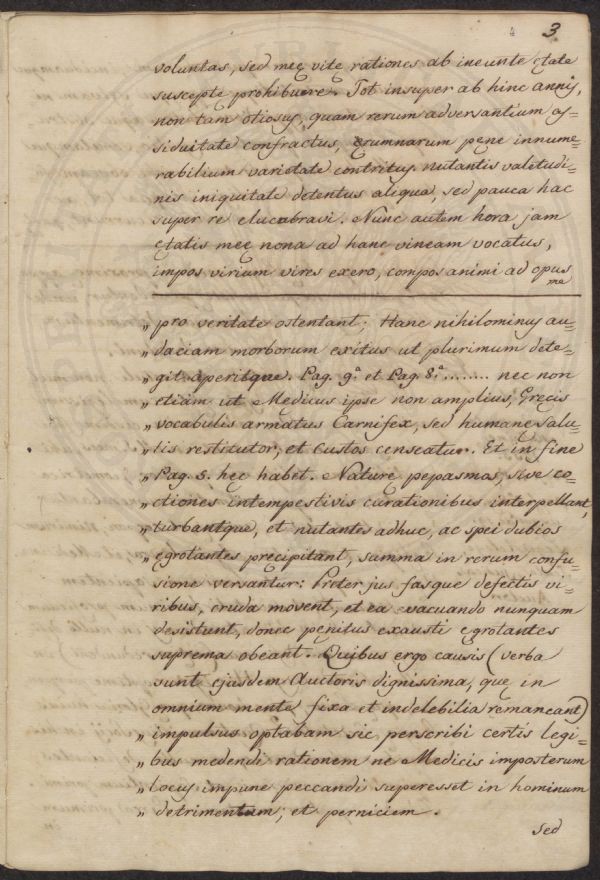 4 3
voluntas, sed meę vitę rationes ab ineunte ętate
susceptę prohibuere. Tot insuper ab hinc annis,
non tam otiosus, quam rerum adversantium as=
siduitate confractus, ęrumnarum pene innume=
rabilium varietate contritus. nutantis valetudi=
nis iniquitate detentus aliqua, sed pauca hac
super re elucubravi. Nunc autem hora jam
ętatis meę nona ad hanc vineam vocatus,
impos virium vires exero, compos animi ad opus
me
„ pro veritate ostentant; Hanc nihilominus au=
„ daciam morborum exitus ut plurimum dete=
„ git aperitque. Pag. 9.ª et Pag. 8.ª ........ nec non
„ etiam ut Medicus ipse non amplius, Gręcis
„ vocabulis armatus Carnifex, sed humanę salu=
„ tis restitutor, et Custos censeatur. Et in fine
„ Pag. 5. hęc habet. Naturę pepasmos, sive co=
„ ctiones intempestivis curationibus interpellant,
„ turbantque, et nutantes adhuc, ac spei dubios
„ ęgrotantes pręcipitant, summa in rerum confu=
„ sione versantur: Pręter jus fasque defectis vi=
„ ribus, cruda movent, et ea evacuando nunquam
„ desistunt, donec pęnitus exausti ęgrotantes
„ suprema obeant. Quibus ergo causis (verba
„ sunt ejusdem Auctoris dignissima, quę in
„ omnium mente fixa et indelebilia remaneant)
„ impulsus optabam sic perscribi certis legi=
„ bus medendi rationem ne Medicis imposterum
„ locus impune peccandi superesset in hominum
„ detrimentum, et perniciem.
sed